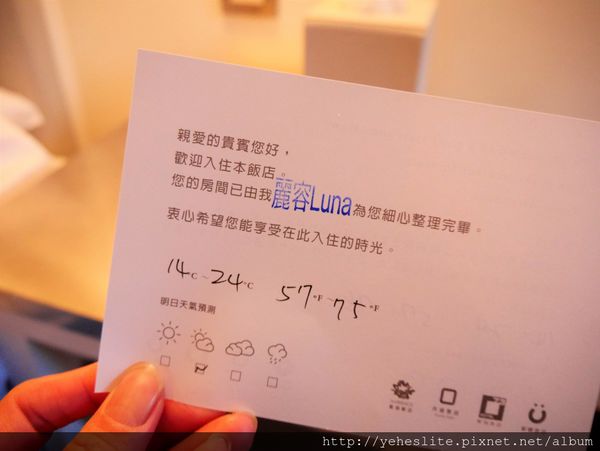 親愛的貴賓您好，
歡迎入住本飯店。
您的房間已由我麗容Luna為您細心整理完畢。
衷心希望您能享受在此入住的時光。
14°C～24°C 57°F～75°F
明日天氣預測
http://yeheslite.pixnet.net/album